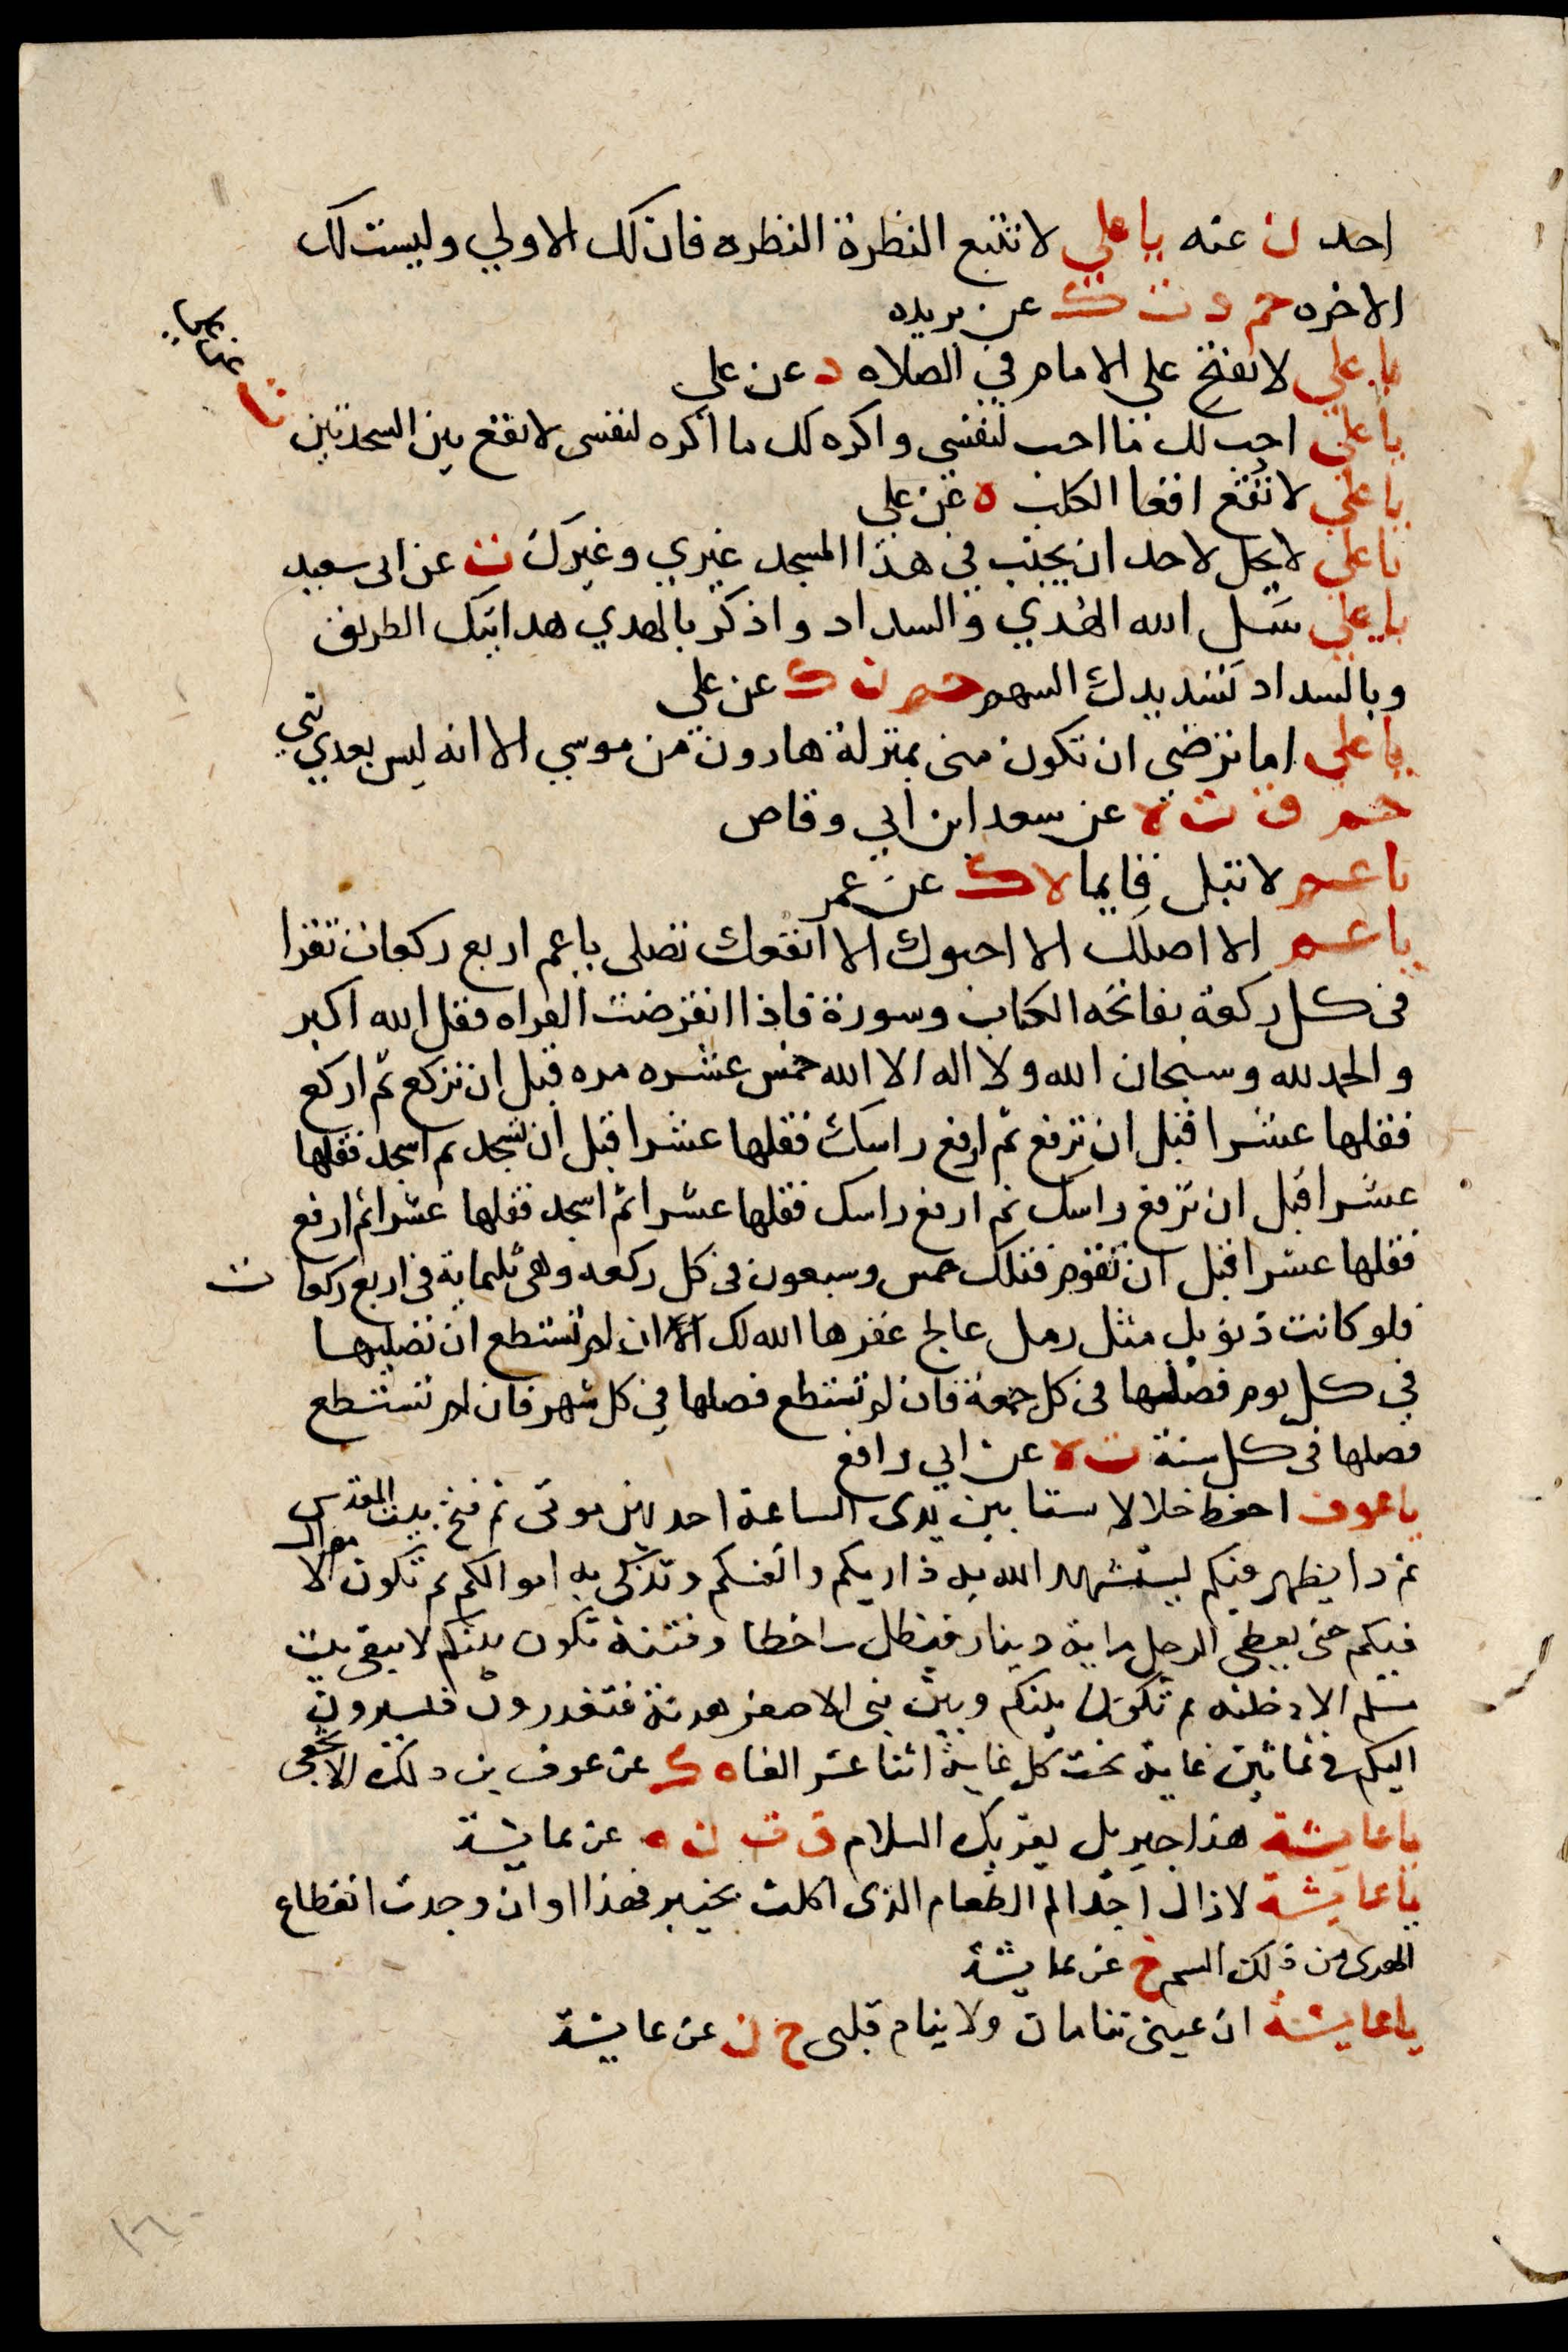 احد ن عنه يا علي لا تتبع النظرة النظره فان لك الاولي وليست لك
الاخره حم د ت ك عن بريده
يا علي لا تفتح علي الامام في الصلاه د عن علي
يا علي احب لك ما احب لنفسي واكره لك ما اكره لنفسي لا تقع بين السجدتين ت عن علي
يا علي لا تقع اقعا الكلب ه عن علي
يا علي لا يحل لاحد ان يجنب في هذا المسجد غيري وغيرك ت عن ابي سعيد
يا علي سل الله الهدي والسداد واذكر بالهدي هدايتك الطريق
وبالسداد تسديدك السهم حم ن ك عن علي
يا علي اما ترضي ان تكون مني بمنزلة هارون من موسي الا انه ليس بعدي نبي
حم ق ت ه عن سعد ابن ابي وقاص
يا عمر لا تبل قايما ه ك عن عمر
يا عم الا اصلك الا احبوك الا انفعك تصلي يا عم اربع ركعات تقرا
في كل ركعة بفاتحه الكتاب وسورة فاذا انقرضت القراه فقل الله اكبر
والحمد لله وسبحان الله ولا اله الا الله خمس عشره مره قبل ان تركع ثم اركع
فقلها عشرا قبل ان ترفع ثم ارفع راسك فقلها عشرا قبل ان تسجد ثم اسجد فقلها
عشرا قبل ان ترفع راسك ثم ارفع راسك فقلها عشرا ثم اسجد فقلها عشرا ثم ارفع
فقلها عشرا قبل ان تقوم فتلك خمس وسبعون في كل ركعه وهي ثلثماية في اربع ركعات
فلو كانت ذنوبك مثل رمل عالج غفرها الله لك ان لم تستطع ان تصليها
في كل يوم فصليها في كل جمعة فان لم تستطع فصلها في كل شهر فان لم تستطع
فصلها في كل سنة ت ه عن ابي رافع
يا عوف احفظ خلالا ستا بين يدي الساعة احديهن موتي ثم فتح بيت المقدس
ثم دا يظهر فيكم ليستشهد الله به ذراريكم وانفسكم وتزكي به اموالكم ثم تكون الاموال
فيكم حتي يعطي الرجل ماية دينار فيظل ساخطا وفتنة تكون بينكم لا يبقي بيت
مسلم الا دخلته ثم تكون بينكم وبين بني الاصفر هدنة فتغدرون فيسيرون
اليكم في ثمانين غاية تحت كل غاية اثنا عشر الفا ه ك عن عوف بن مالك الاشجعي
يا عايشة هذا جبريل يقريك السلام ق ت ن ه عن عايشة
يا عايشة لا زال اجد الم الطعام الذي اكلت بخيبر فهذا اوان وجدت انقطاع
ابهري من ذلك السم خ عن عايشة
يا عايشة ان عيني تنامان ولا ينام قلبي خ ن عن عايشة
١٦٠